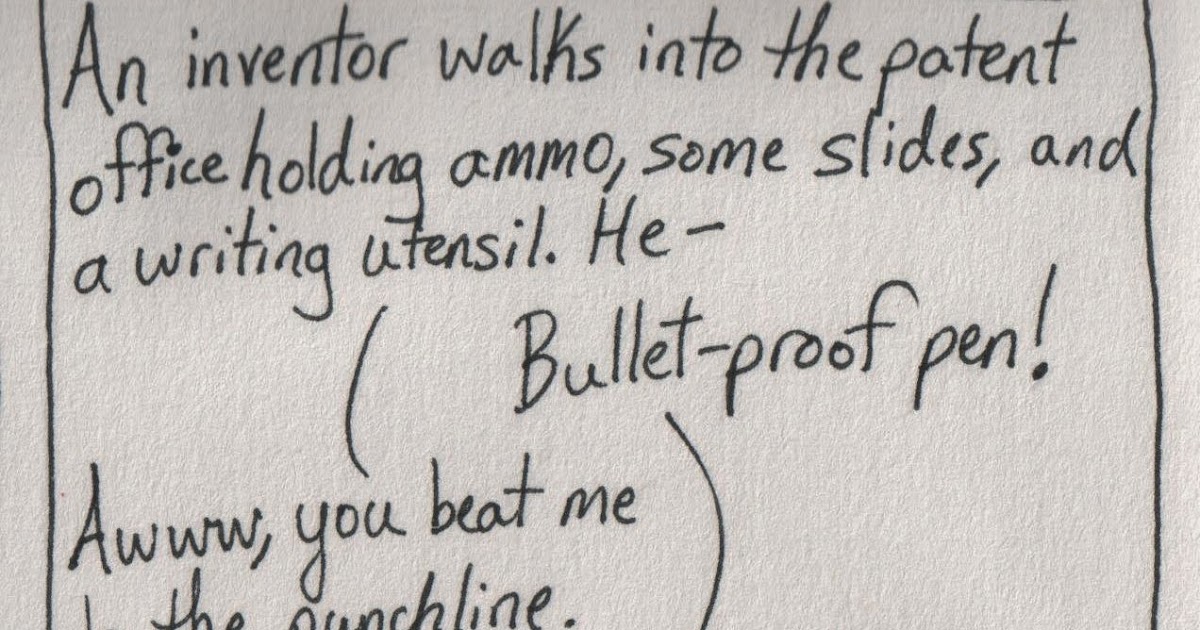 An inventor walks into the patent
office holding ammo, some slides, and
a writing utensil. He-
Bullet-proof pen!
Awww, you beat me
the punchline.